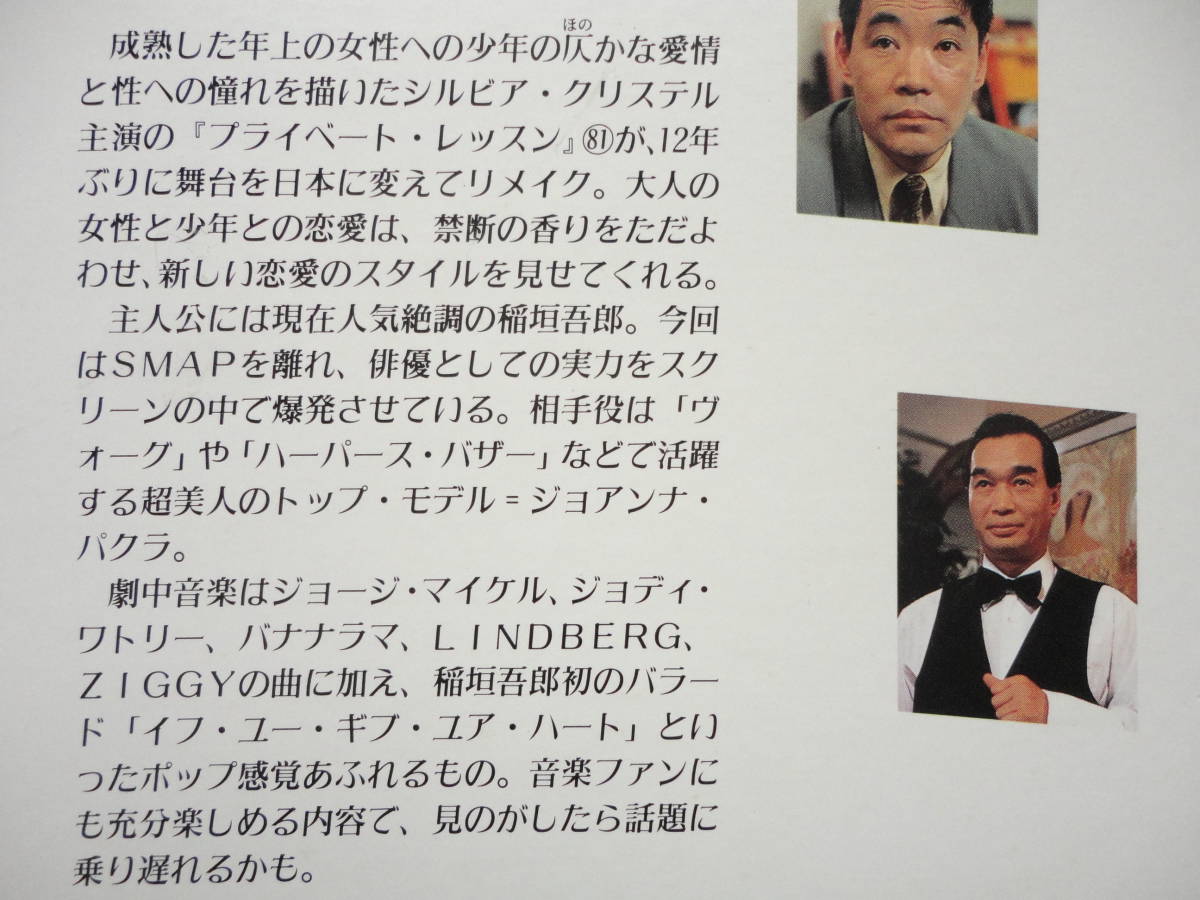 ほの
成熟した年上の女性への少年の仄かな愛情
と性への憧れを描いたシルビア・クリステル
主演の『プライベート・レッスン』㊶が、12年
ぶりに舞台を日本に変えてリメイク。大人の
女性と少年との恋愛は、禁断の香りをただよ
わせ、新しい恋愛のスタイルを見せてくれる。
主人公には現在人気絶調の稲垣吾郎。今回
はＳＭＡＰを離れ、俳優としての実力をスク
リーンの中で爆発させている。相手役は「ヴ
ォーグ」や「ハーパース・バザー」などで活躍
する超美人のトップ・モデル＝ジョアンナ・
パクラ。
劇中音楽はジョージ・マイケル、ジョディ・
ワトリー、バナナラマ、ＬＩＮＤＢＥＲＧ、
ＺＩＧＧＹの曲に加え、稲垣吾郎初のバラー
ド「イフ・ユー・ギブ・ユア・ハート」とい
ったポップ感覚あふれるもの。音楽ファンに
も充分楽しめる内容で、見のがしたら話題に
乗り遅れるかも。